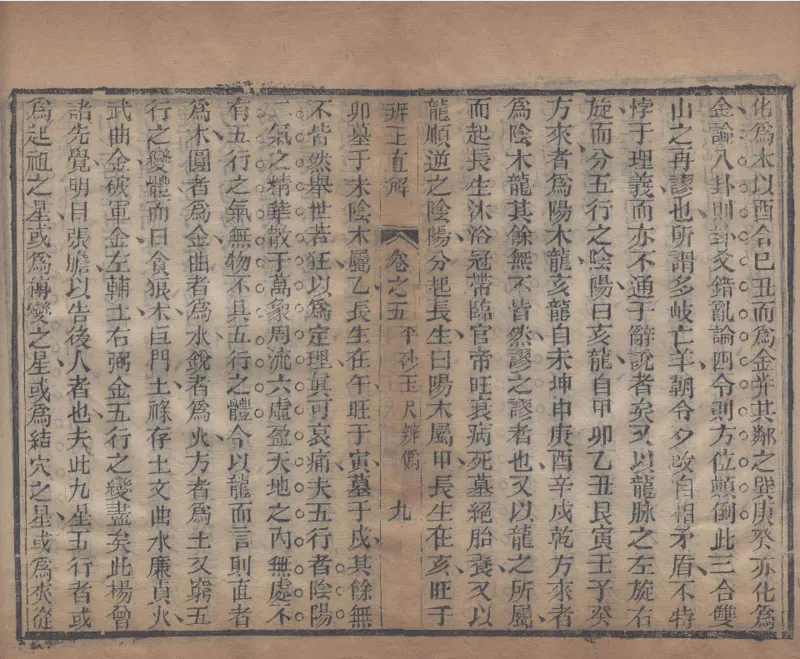 化為木以酉合巳丑而為金并其鄰之巽庚癸亦化為
金論八卦則卦爻錯亂論四令則方位顛倒此三合雙
山之再謬也所謂多岐亡羊朝令夕改自相矛盾不特
悖于理義而亦不通于辭說者矣又以龍脉之左旋右
旋而分五行之陰陽曰亥龍自甲卯乙丑艮寅壬子癸
方來者為陽木龍亥龍自未坤申庚酉辛戌乾方來者
為陰木龍其餘無不皆然謬之謬者也又以龍之所屬
而起長生沐浴冠帶臨官帝旺衰病死墓絕胎養又以
龍順逆之陰陽分起長生曰陽木屬甲長生在亥旺于
辨正直解 卷之五 平砂玉尺辨偽 九
卯墓于未陰木屬乙長生在午旺于寅墓于戌其餘無
不皆然舉世若狂以為定理真可哀痛夫五行者陰陽
二氣之精華散于萬象周流六虛盈天地之內無處不
有五行之氣無物不具五行之體今以龍而言則直者
為木圓者為金曲者為水銳者為火方者為土又窮五
行之變體而曰貪狼木巨門土祿存土文曲水廉貞火
武曲金破軍金左輔土右弼金五行之變盡矣此楊曾
諸先覺明目張膽以告後人者也夫此九星五行者或
為起祖之星或為傳變之星或為結穴之星或為夾從